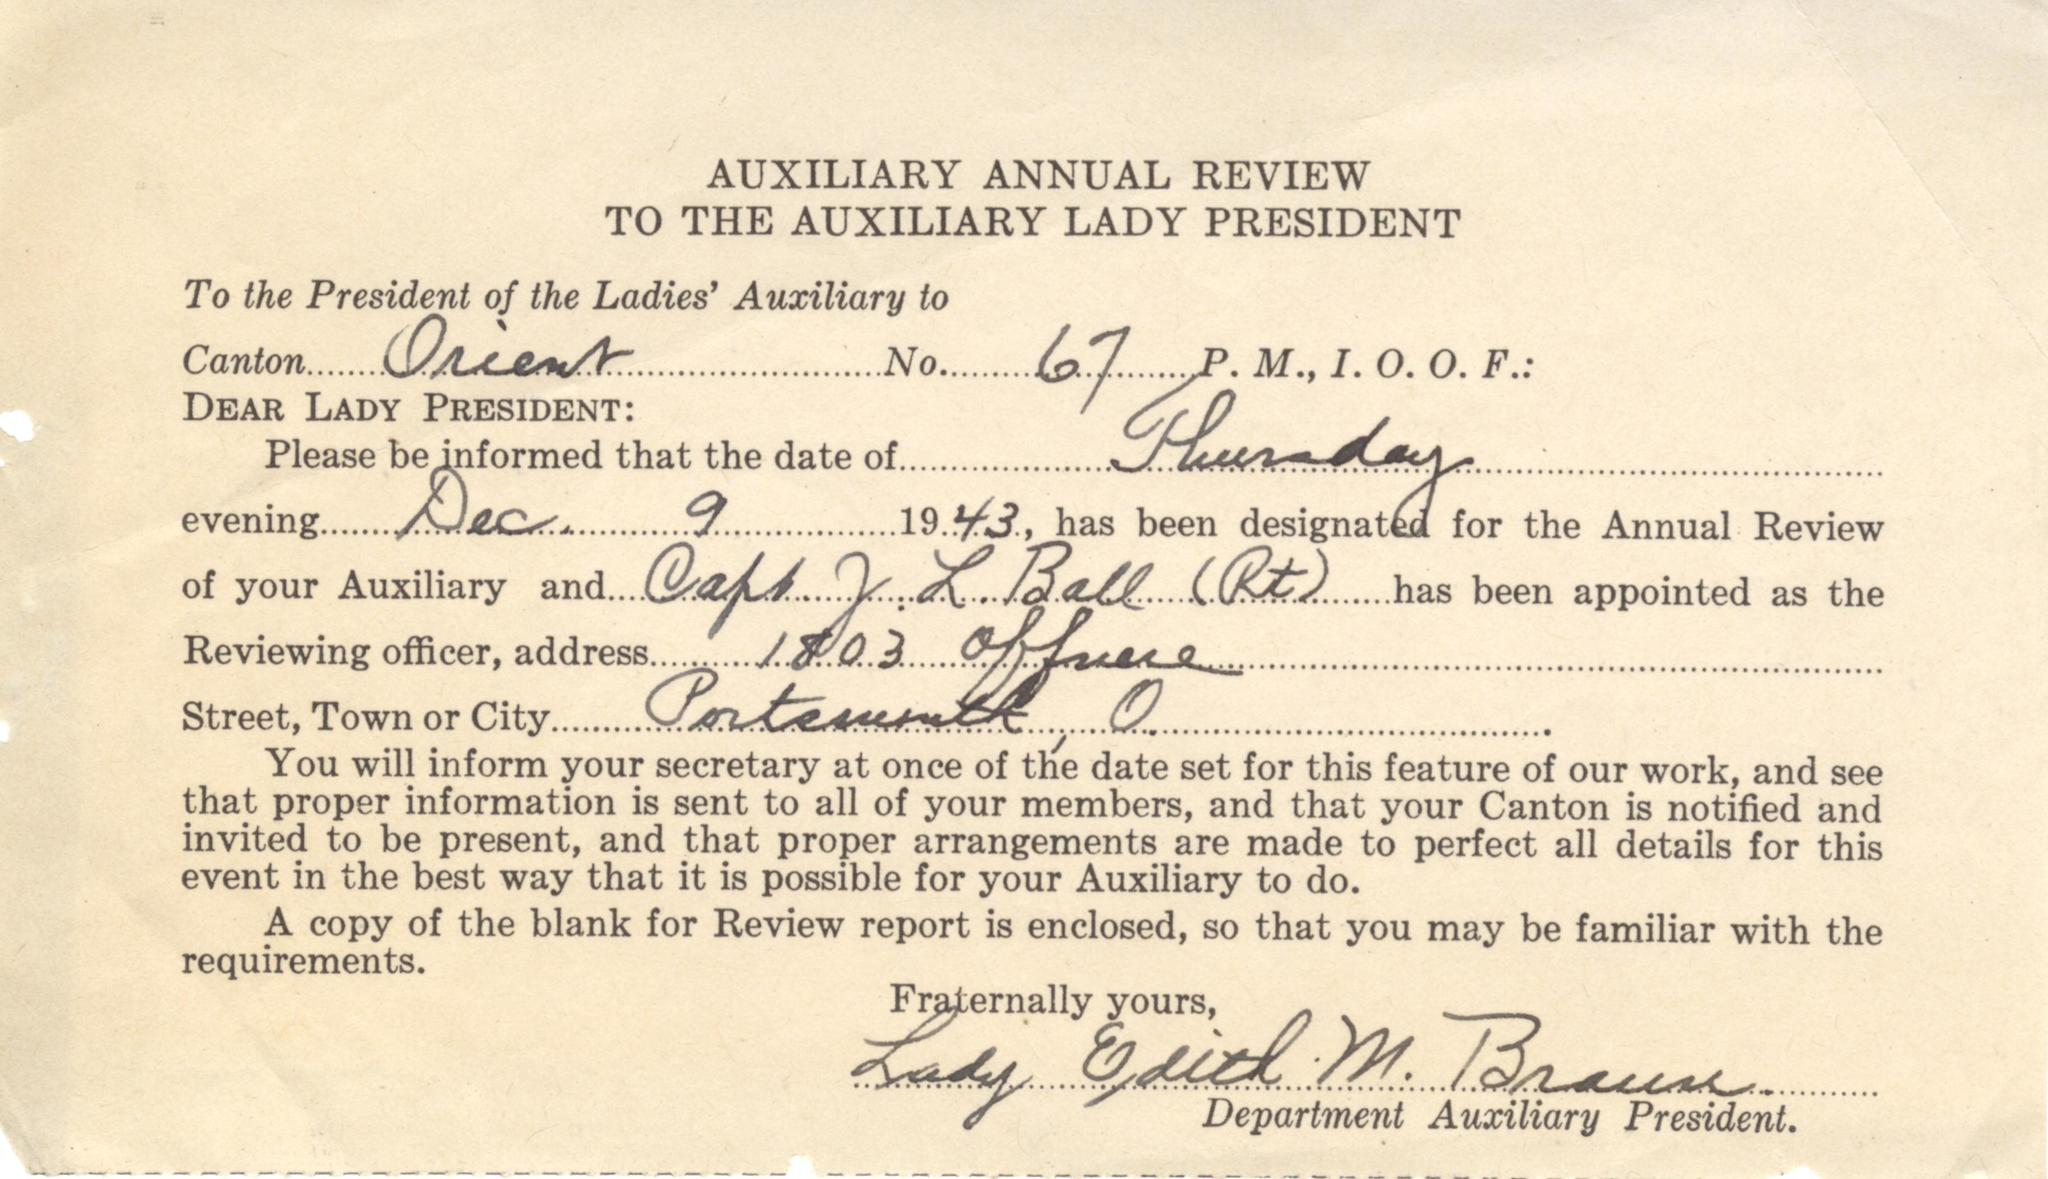 AUXILIARY ANNUAL REVIEW
TO THE AUXILIARY LADY PRESIDENT
To the President of the Ladies' Auxiliary to
Canton Orient No. 67 P. M., I. O. O. F.:
DEAR LADY PRESIDENT:
Please be informed that the date of Thursday
evening Dec. 9 1943, has been designated for the Annual Review
of your Auxiliary and Capt. J. L. Ball (Rt) has been appointed as the
Reviewing officer, address 1803 Offnere
Street, Town or City Portsmouth, O.
You will inform your secretary at once of the date set for this feature of our work, and see
that proper information is sent to all of your members, and that your Canton is notified and
invited to be present, and that proper arrangements are made to perfect all details for this
event in the best way that it is possible for your Auxiliary to do.
A copy of the blank for Review report is enclosed, so that you may be familiar with the
requirements.
Fraternally yours,
Lady Edith M. Braun.
Department Auxiliary President.